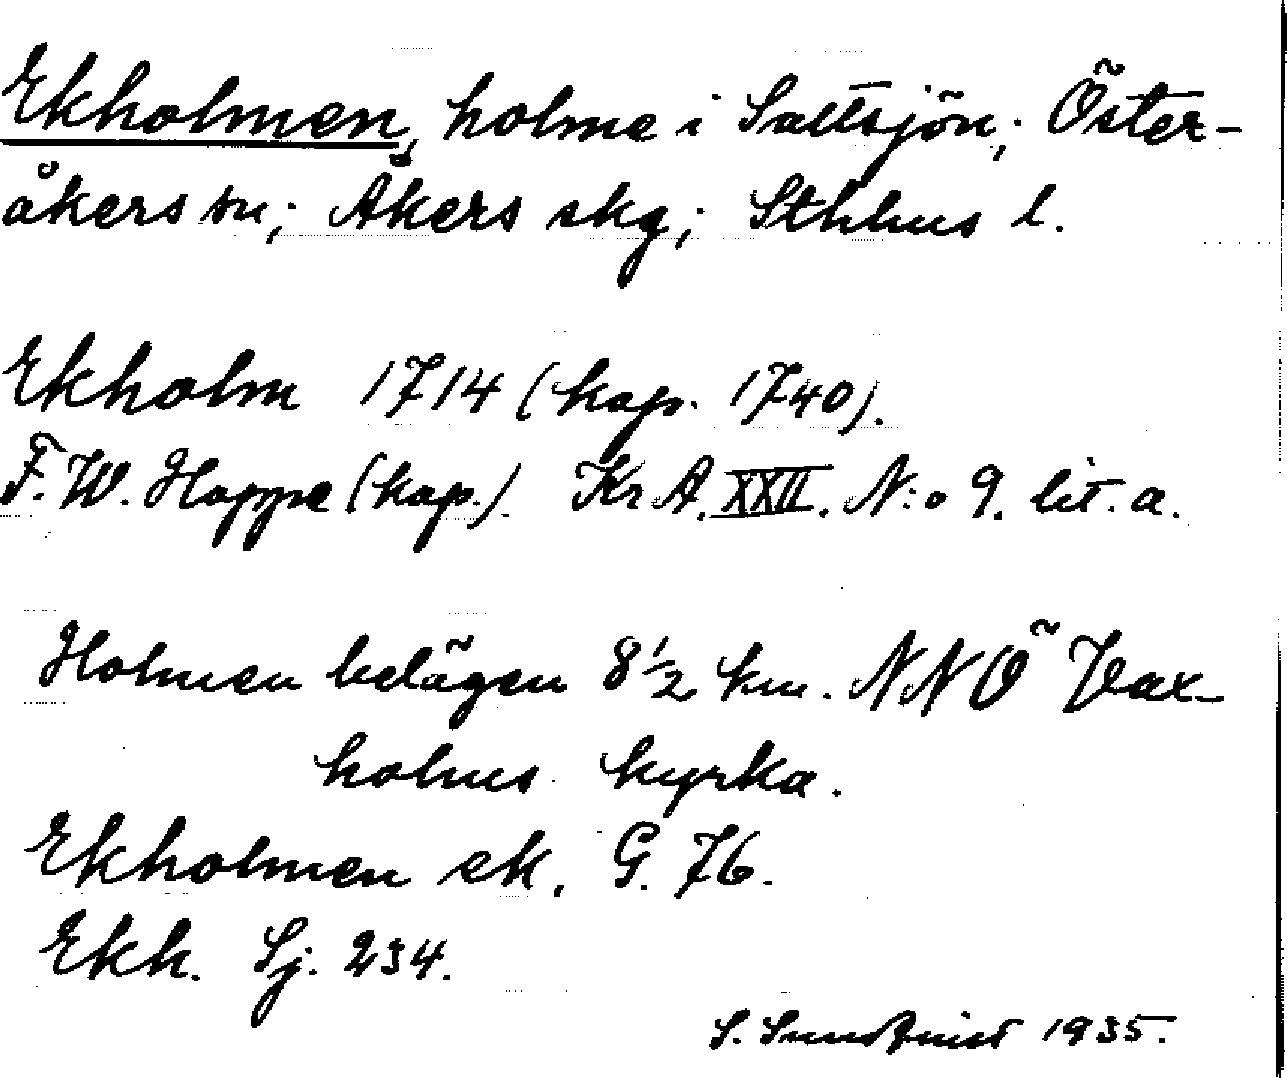 Ekholmen, holme i Saltsjön; Öster-
åkers sn; Åkers skg; Sthlms l.
Ekholm 1714 (kap. 1740).
F. W. Hoppe (kap.). Kr A. XXII. N:o 9. lit. a.
Holmen belägen 8 1/2 km. NNÖ Vax-
holms kyrka.
Ekholmen ek. G. 76.
Ekh. Sj. 234.
S. Sundqvist 1935.